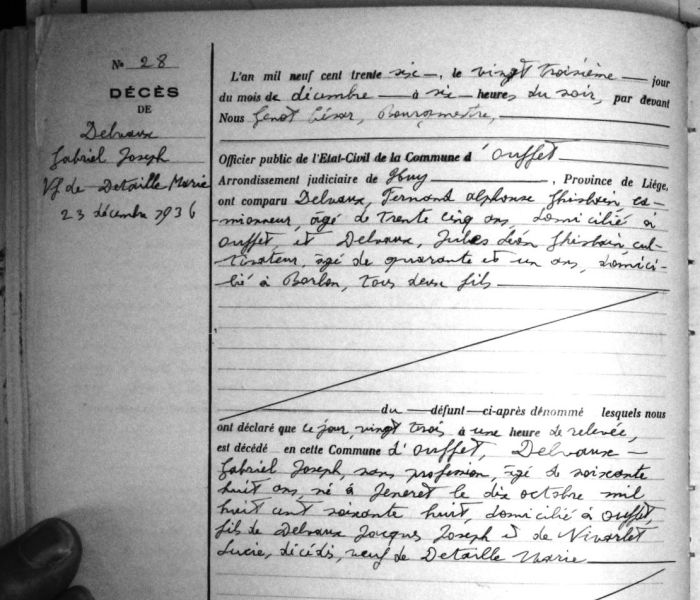 No 28
DÉCÈS
DE
Delvaux
Gabriel Joseph
Vf de Detaille Marie
23 décembre 1936
L'an mil neuf cent trente six, le vingt troisième jour
du mois de décembre à six heures du soir, par devant
Nous Genot César, Bourgmestre,
Officier public de l'Etat-Civil de la Commune d'Ouffet
Arrondissement judiciaire de Huy, Province de Liége,
ont comparu Delvaux, Fernand Alphonse Ghislain ca-
mionneur, âgé de trente cinq ans, domicilié à
Ouffet, et Delvaux, Jules Léon Ghislain, cul-
tivateur, âgé de quarante et un ans, domici-
lié à Borlon, tous deux fils
du défunt ci-après dénommé lesquels nous
ont déclaré que ce jour, vingt trois à une heure de relevée,
est décédé en cette Commune d'Ouffet, Delvaux
Gabriel Joseph, sans profession, âgé de soixante
huit ans, né à Jeneret le dix octobre mil
huit cent soixante huit, domicilié à Ouffet,
fils de Delvaux Jacques Joseph et de Nivarlet
Lucie, décédés, veuf de Detaille Marie